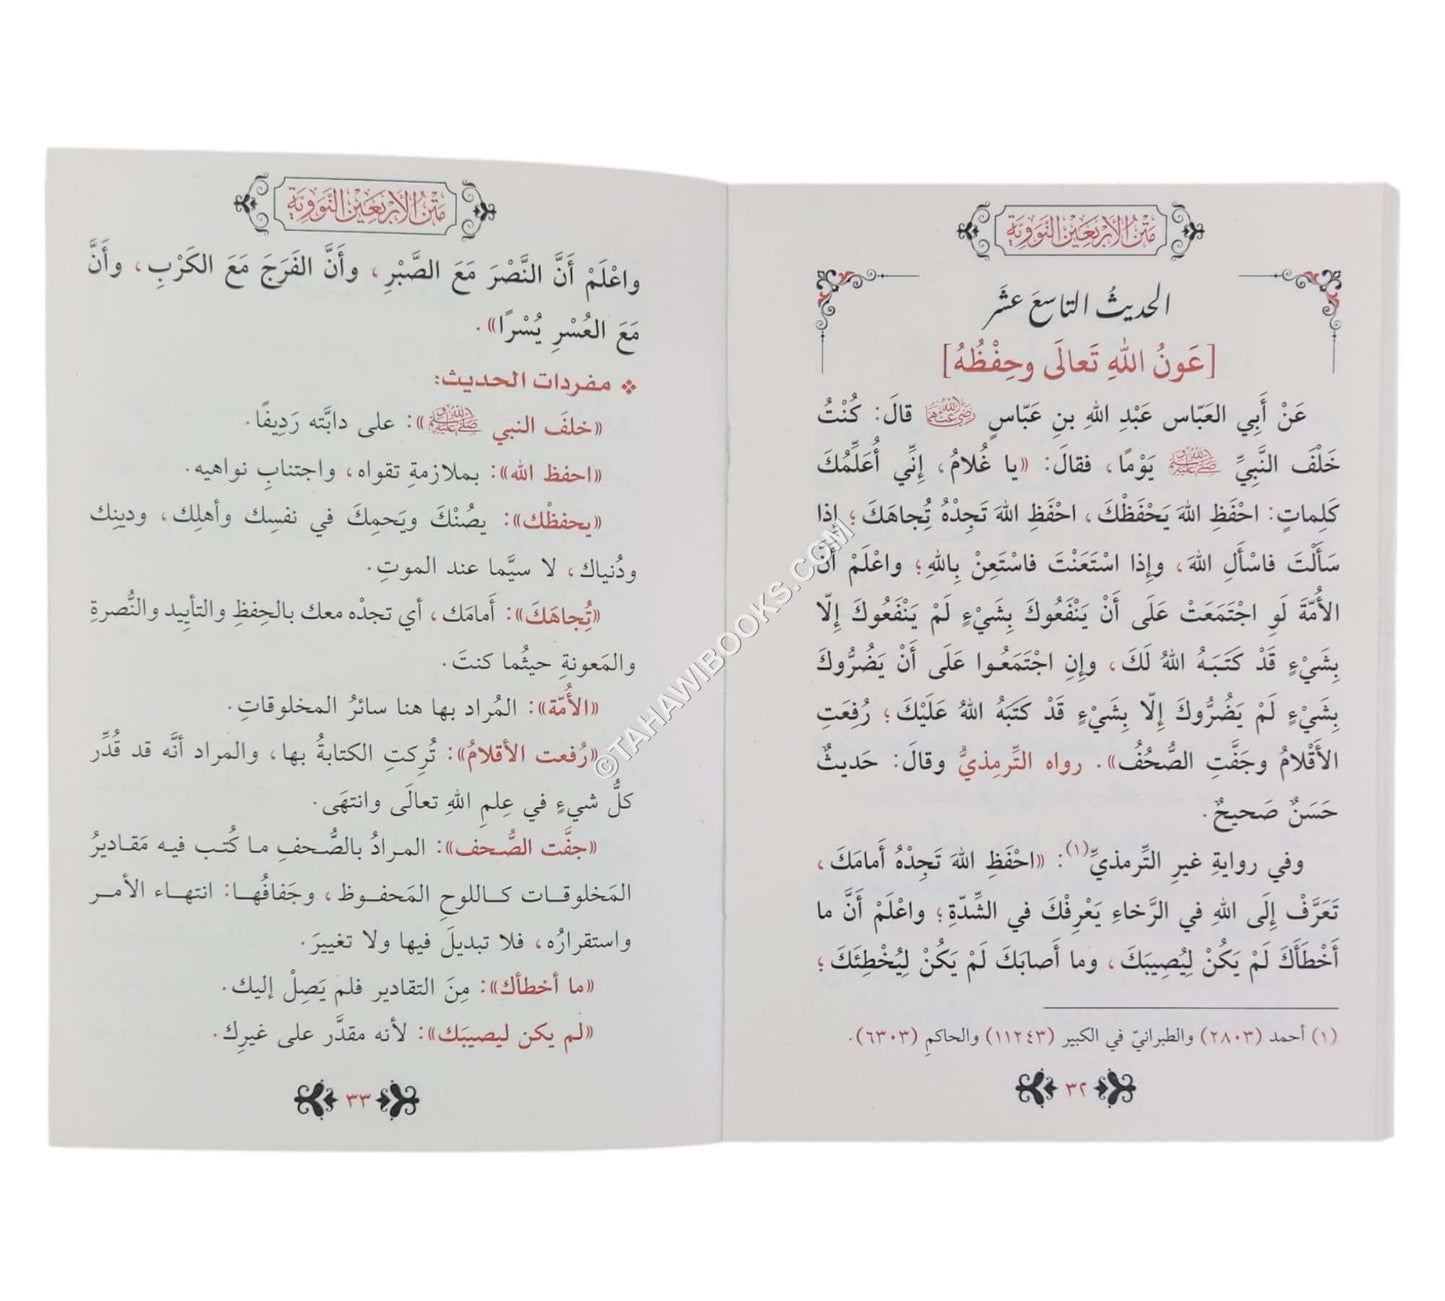 مَتْنُ الأَرْبَعِيْنَ النَّوَوِيَّةِ
الحديثُ التاسعَ عشَر
[عَونُ اللهِ تَعالَى وحِفْظُهُ]
عَنْ أَبِي العَبّاس عَبْدِ اللهِ بنِ عَبّاسٍ رَضِيَ اللهُ عَنْهُمَا قالَ: كُنْتُ
خَلْفَ النَّبِيِّ ﷺ يَوْمًا، فقالَ: «يا غُلامُ، إِنِّي أُعَلِّمُكَ
كَلِماتٍ: احْفَظِ اللهَ يَحْفَظْكَ، احْفَظِ اللهَ تَجِدْهُ تُجاهَكَ؛ إِذا
سَأَلْتَ فاسْأَلِ اللهَ، وإِذا اسْتَعَنْتَ فاسْتَعِنْ بِاللهِ؛ واعْلَمْ أَنَّ
الأُمَّةَ لَوِ اجْتَمَعَتْ عَلَى أَنْ يَنْفَعُوكَ بِشَيْءٍ لَمْ يَنْفَعُوكَ إِلّا
بِشَيْءٍ قَدْ كَتَبَهُ اللهُ لَكَ، وإِنِ اجْتَمَعُوا عَلَى أَنْ يَضُرُّوكَ
بِشَيْءٍ لَمْ يَضُرُّوكَ إِلّا بِشَيْءٍ قَدْ كَتَبَهُ اللهُ عَلَيْكَ؛ رُفِعَتِ
الأَقْلامُ وجَفَّتِ الصُّحُفُ». رواه التِّرمِذيُّ وقالَ: حَديثٌ
حَسَنٌ صَحيحٌ.
وفي روايةِ غيرِ التِّرمذيِّ(١): «احْفَظِ اللهَ تَجِدْهُ أَمامَكَ،
تَعَرَّفْ إِلَى اللهِ في الرَّخاءِ يَعْرِفْكَ في الشِّدّةِ؛ واعْلَمْ أَنَّ ما
أَخْطَأَكَ لَمْ يَكُنْ لِيُصِيبَكَ، وما أَصابَكَ لَمْ يَكُنْ لِيُخْطِئَكَ؛
(١) أحمد (٢٨٠٣) والطبرانيّ في الكبير (١١٢٤٣) والحاكمِ (٦٣٠٣).
٣٢
مَتْنُ الأَرْبَعِيْنَ النَّوَوِيَّةِ
واعْلَمْ أَنَّ النَّصْرَ مَعَ الصَّبْرِ، وأَنَّ الفَرَجَ مَعَ الكَرْبِ، وأَنَّ
مَعَ العُسْرِ يُسْرًا».
❖ مفردات الحديث:
«خلفَ النبي ﷺ»: على دابَّته رَدِيفًا.
«احفظ الله»: بملازمةِ تقواه، واجتنابِ نواهيه.
«يحفظْك»: يصُنْكَ ويَحمِكَ في نفسِك وأهلِك، ودينِك
ودُنياك، لا سيَّما عند الموتِ.
«تُجاهَكَ»: أَمامَك، أي تجدْه معك بالحِفظِ والتأييد والنُّصرةِ
والمَعونةِ حيثُما كنتَ.
«الأُمّة»: المُراد بها هنا سائرُ المخلوقاتِ.
«رُفعت الأقلامُ»: تُركتِ الكتابةُ بها، والمراد أنَّه قد قُدِّر
كلُّ شيءٍ في عِلمِ اللهِ تعالَى وانتهَى.
«جفَّت الصُّحف»: المرادُ بالصُّحفِ ما كُتب فيه مَقاديرُ
المَخلوقات كاللوحِ المَحفوظ، وجَفافُها: انتهاء الأمر
واستقرارُه، فلا تبديلَ فيها ولا تغييرَ.
«ما أخطأك»: مِنَ التقادير فلم يَصِلْ إليك.
«لم يكن ليصيبَك»: لأنه مقدَّر على غيرِك.
٣٣
©TAHAWIBOOKS.COM